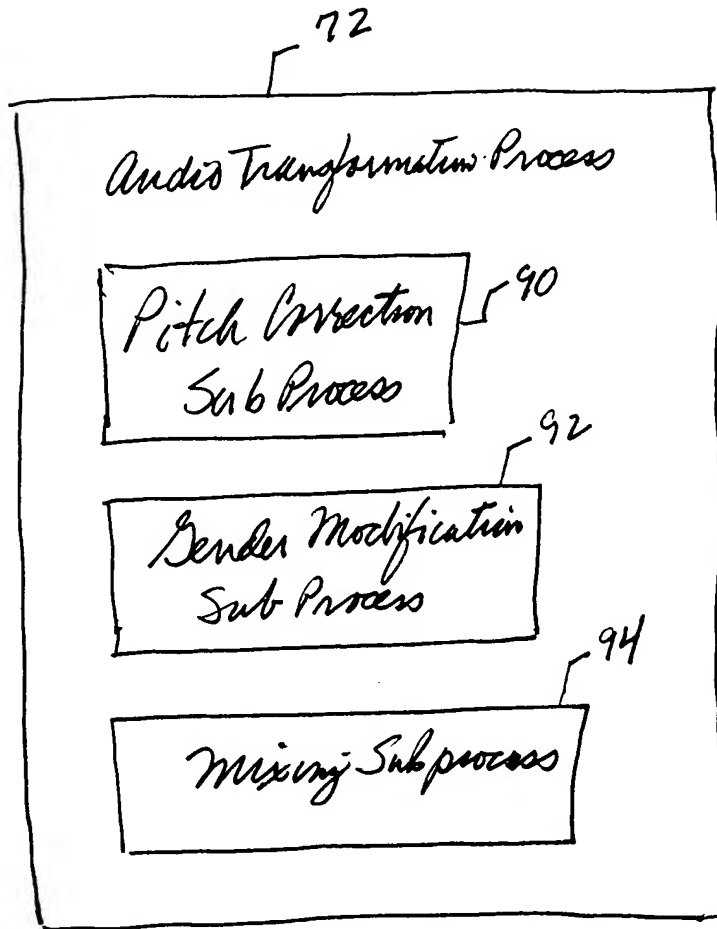 72
Audio Transformation Process
Pitch Correction
90
Sub Process
92
Gender Modification
Sub Process
94
Mixing Subprocess